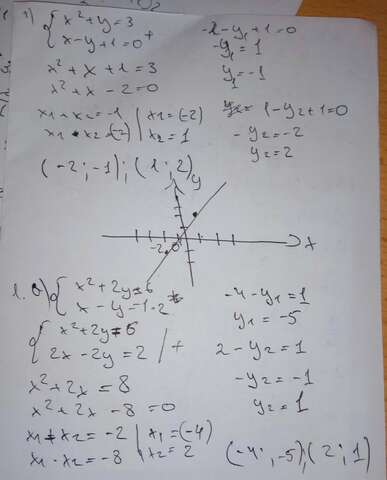 1) { x² + y = 3
x - y + 1 = 0 +
x² + x + 1 = 3
x² + x - 2 = 0
x1 + x2 = -1 | x1 = (-2)
x1 · x2 = (-2) | x2 = 1
(-2 ; -1) ; (1 ; 2)
-2 - y1 + 1 = 0
-y1 = 1
y1 = -1
1 - y2 + 1 = 0
-y2 = -2
y2 = 2
y
-2 0
x
{ x² + 2y = 6
x - y = 1 · 2
{ x² + 2y = 6
2x - 2y = 2 | +
x² + 2x = 8
x² + 2x - 8 = 0
x1 + x2 = -2 | x1 = (-4)
x1 · x2 = -8 | x2 = 2
-4 - y1 = 1
y1 = -5
2 - y2 = 1
-y2 = -1
y2 = 1
(-4 ; -5) ; (2 ; 1)